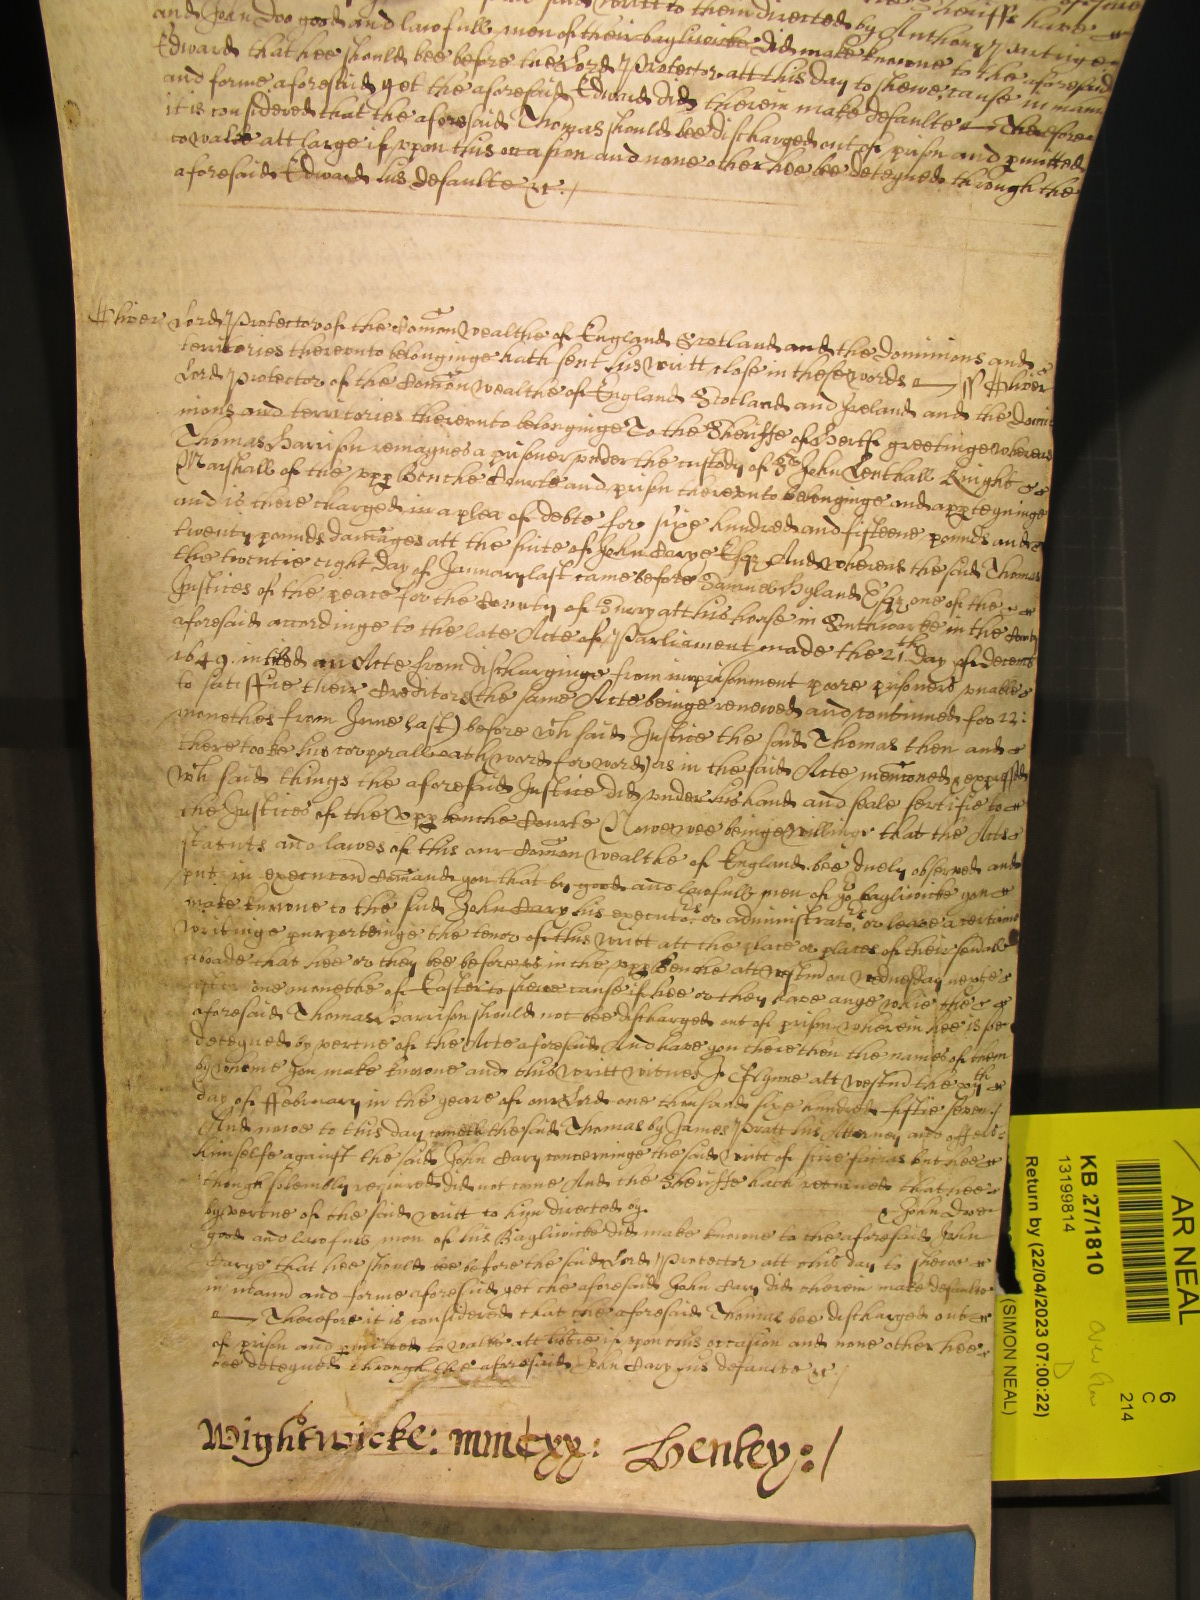 and John Doo good and lawfull men of their bayliwicke did make knowne to the aforesaid
Edward that hee should bee before the Lord Protector att this day to shewe cause in mann
and forme aforesaid yet the aforesaid Edward did therein make defaulte Therefore
it is considered that the aforesaid Thomas should bee discharged out of prison and pmitted
to walke att large if upon this occasion and none other hee bee deteyned through the
aforesaid Edward his defaulte &c:/
Oliver Lord Protector of the Comon wealthe of England Scotland and the dominions and
territories thereunto belonginge hath sent his writt close in these words ss Oliver
Lord Protector of the Comon wealthe of England Scotland and Ireland and the domi
nions and territories thereunto belonginge To the Sheriffe of Hertf greetinge whereas
Thomas Harrison remaynes a prisoner under the custody of Sr John Lenthall Knight
Marshall of the upp Benche Courte and prison thereunto belonginge and appteyninge
and is there charged in a plea of debte for sixe hundred and fifteene pounds and
twenty pounds damages att the suite of John Carye Esqr And whereas the said Thomas
the twentie eight day of January last came before Samuel Hyland Esqr one of the
Justices of the peace for the County of Surry att his house in Southwarke in the County
aforesaid accordinge to the late Acte of Parliament made the 21th day of decemb
1649 intitled an Acte from discharginge from imprisonment poore prisoners unable
to satisffie their Creditors (the same Acte beinge renewed and continued for 12:
monethes from June last) before wch said Justice the said Thomas then and
there tooke his corporall oath word for word as in the said Acte mencioned & expressed
wch said things the aforesaid Justice did under his hand and seale sertifie to
the Justices of the upp benche Courte Nowe wee beinge willinge that the Acts
statuts and lawes of this our Comon wealthe of England bee duely observed and
put in execucon Comand you that by good and lawfull men of yor bayliwicke you
make knowne to the said John Cary his executors or administrators or leave a certaine
writinge purporteinge the tenor of this writt att the place or places of their usuall
aboade that hee or they bee before us in the upp Benche att westm on wednesday nexte
after one monethe of Easter to shewe cause if hee or they have anye whie the
aforesaid Thomas Harrison should not bee discharged out of prison wherein hee is soe
deteyned by vertue of the Acte aforesaid And have you there then the names of them
by whome you make knowne and this writt witnes J Glynne att westm the xijth
day of ffebruary in the yeare of our Lord one thousand sixe hundred fiftie seven /
And nowe to this day cometh the said Thomas by James Pratt his Attorney and offers
himselfe against the said John Cary concerninge the said writt of scire facias but hee
though solemnly required did not come And the Sheriffe hath retorned that hee
by vertue of the said writt to him directed by John Dwe
good and lawfull men of his Bayliwicke did make knowne to the aforesaid John
Carye that hee should bee before the said Lord Protector att this day to shewe
in mann and forme aforesaid yet the aforesaid John Cary did therein make defaulte
Therefore it is considered that the aforesaid Thomas bee discharged out
of prison and pmitted to walke att libtie if upon this occasion and none other hee
bee deteyned through the aforesaid John Cary his defaulte &c:/
Wightwicke: mmcxx: Henley:/
AR NEAL
6
C
214
KB 27/1810
13199814
Return by (22/04/2023 07:00:22)
(SIMON NEAL)